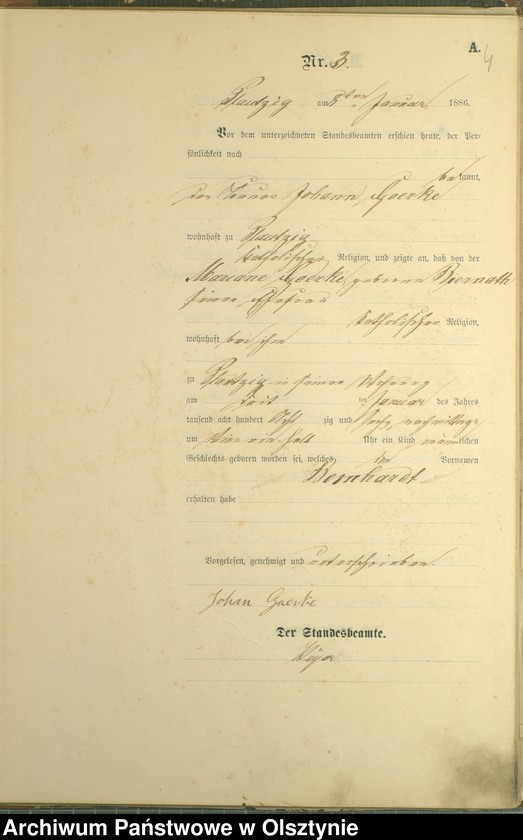 A.
4
Nr. 3.
Plautzig am 8ten Januar 1886.
Vor dem unterzeichneten Standesbeamten erschien heute, der Per-
sönlichkeit nach
bekannt,
der Johann Goerke
wohnhaft zu Plautzig
katholischer Religion, und zeigte an, daß von der
Mariane Goerke, geborene Biernath
seiner Ehefrau
katholischer Religion,
wohnhaft bei ihm
zu Plautzig in seiner Wohnung
am ten Januar des Jahres
tausend acht hundert acht zig und sechs, nachmittags
um ein halb Uhr ein Kind männlichen
Geschlechts geboren worden sei, welches den Vornamen
Bernhardt
erhalten habe
Vorgelesen, genehmigt und unterschrieben.
Johan Goerke
Der Standesbeamte.
Archiwum Państwowe w Olsztynie